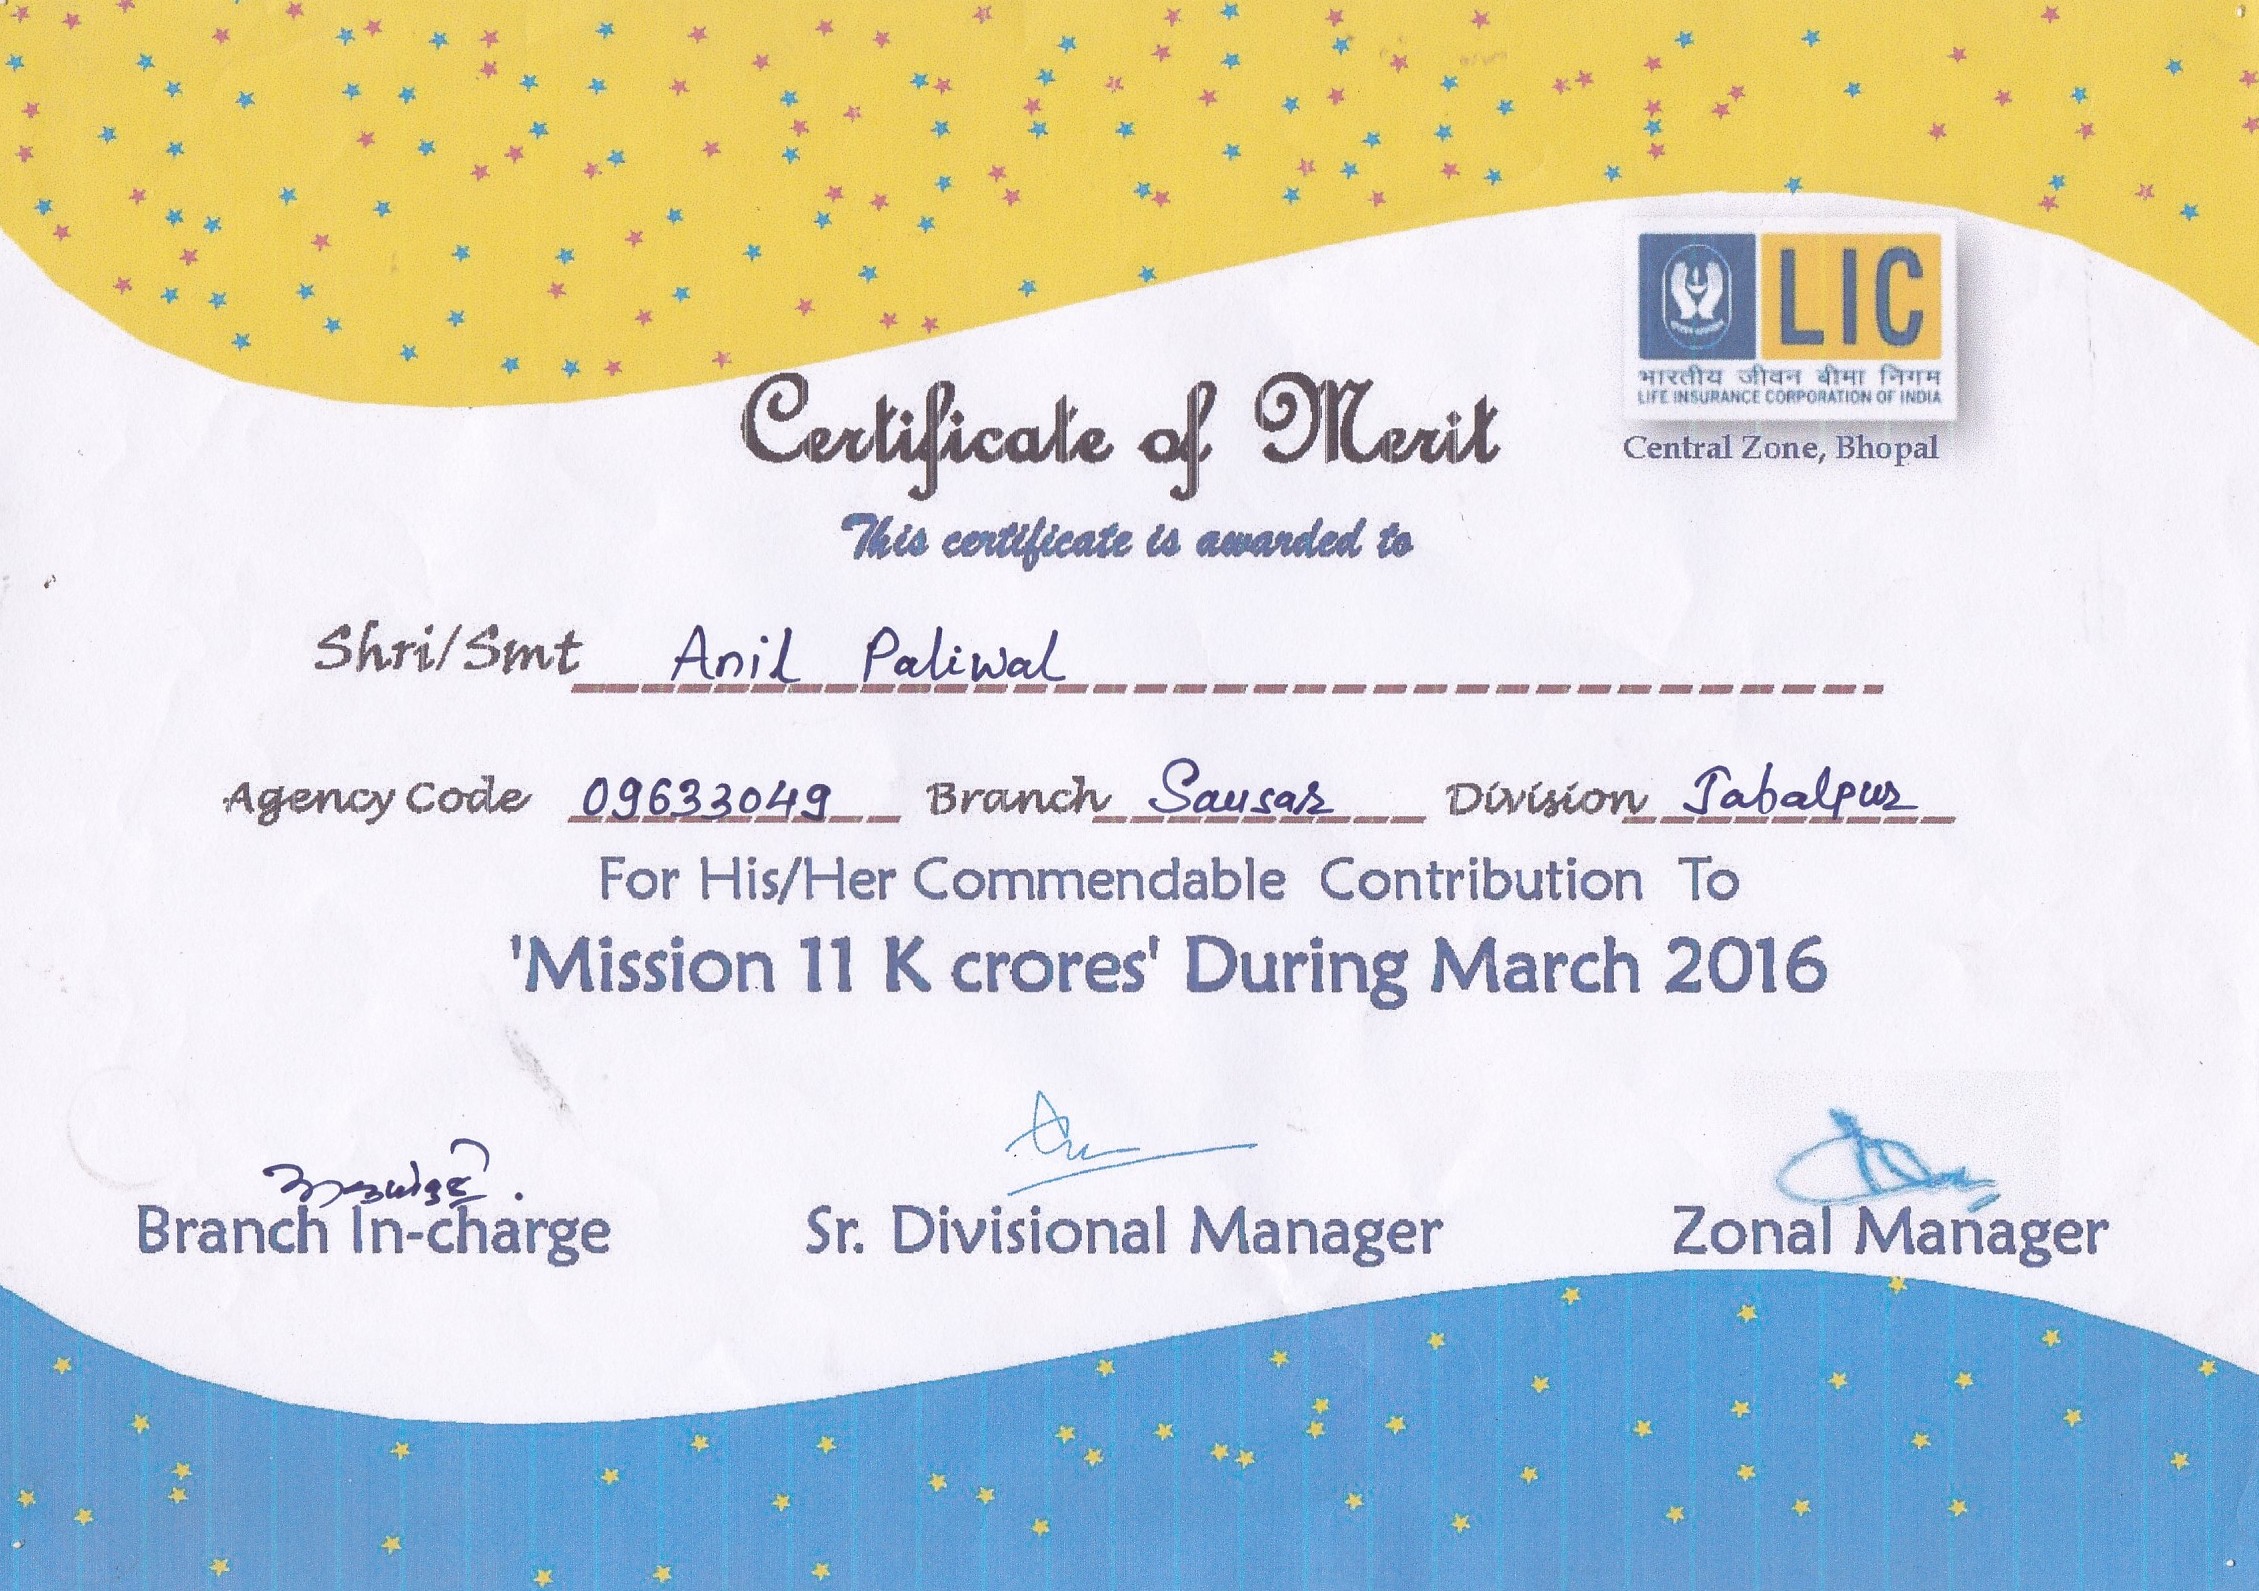 LIC
भारतीय जीवन बीमा निगम
LIFE INSURANCE CORPORATION OF INDIA
Central Zone, Bhopal
Certificate of Merit
This certificate is awarded to
Shri/Smt Anil Paliwal
Agency Code 09633049 Branch Sausar Division Jabalpur
For His/Her Commendable Contribution To
'Mission 11 K crores' During March 2016
Branch In-charge Sr. Divisional Manager Zonal Manager